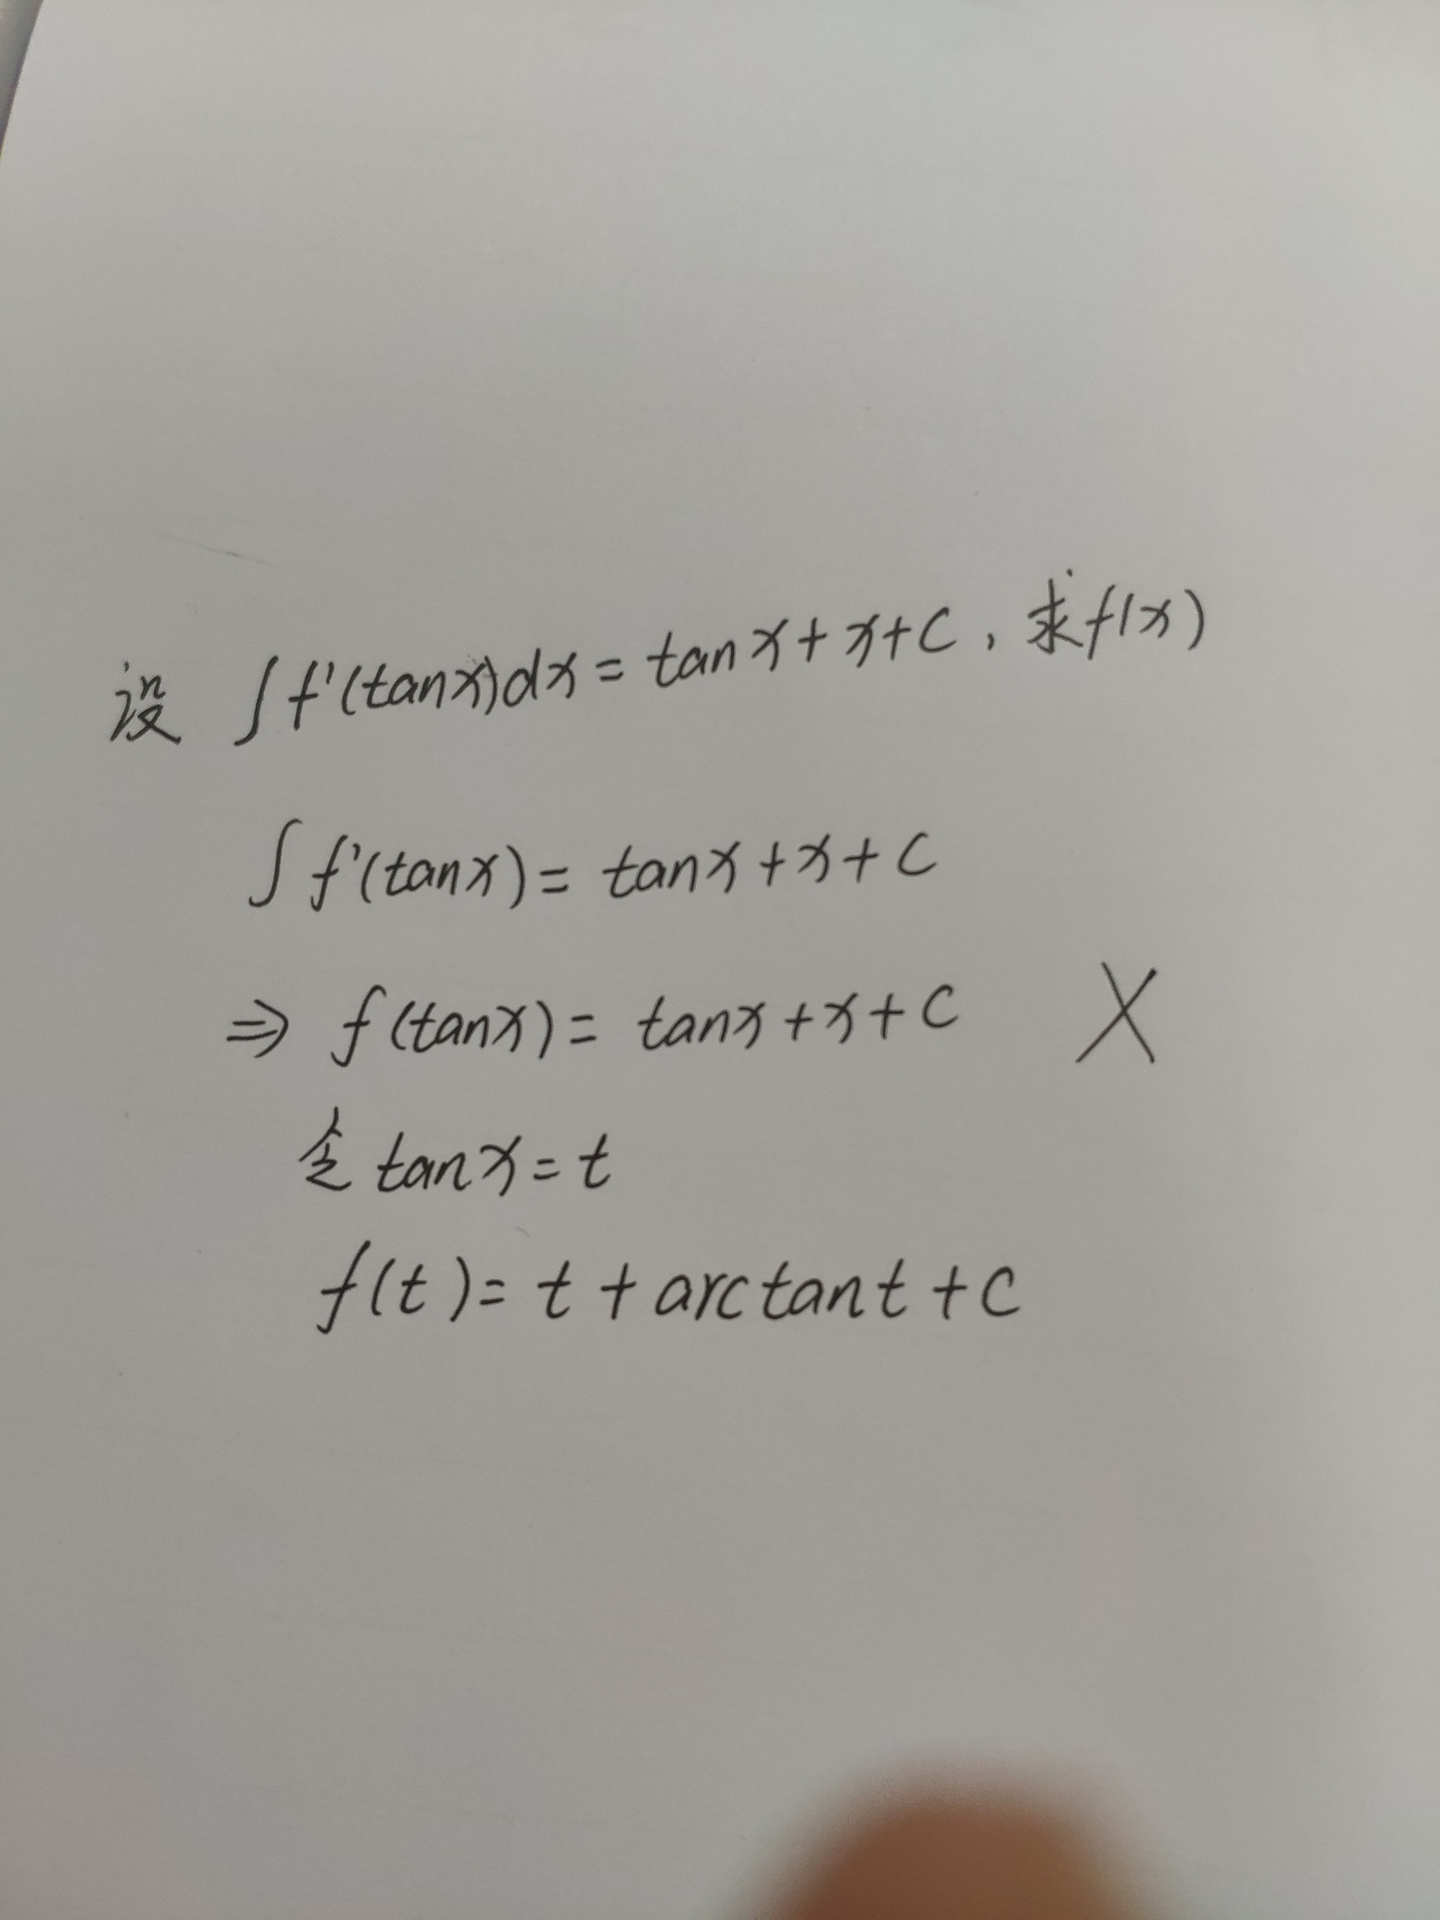 设 ∫f'(tanx)dx = tanx+x+C，求f(x)
∫f'(tanx) = tanx+x+C
⇒ f(tanx) = tanx+x+C X
令 tanx=t
f(t)= t+arctant+C